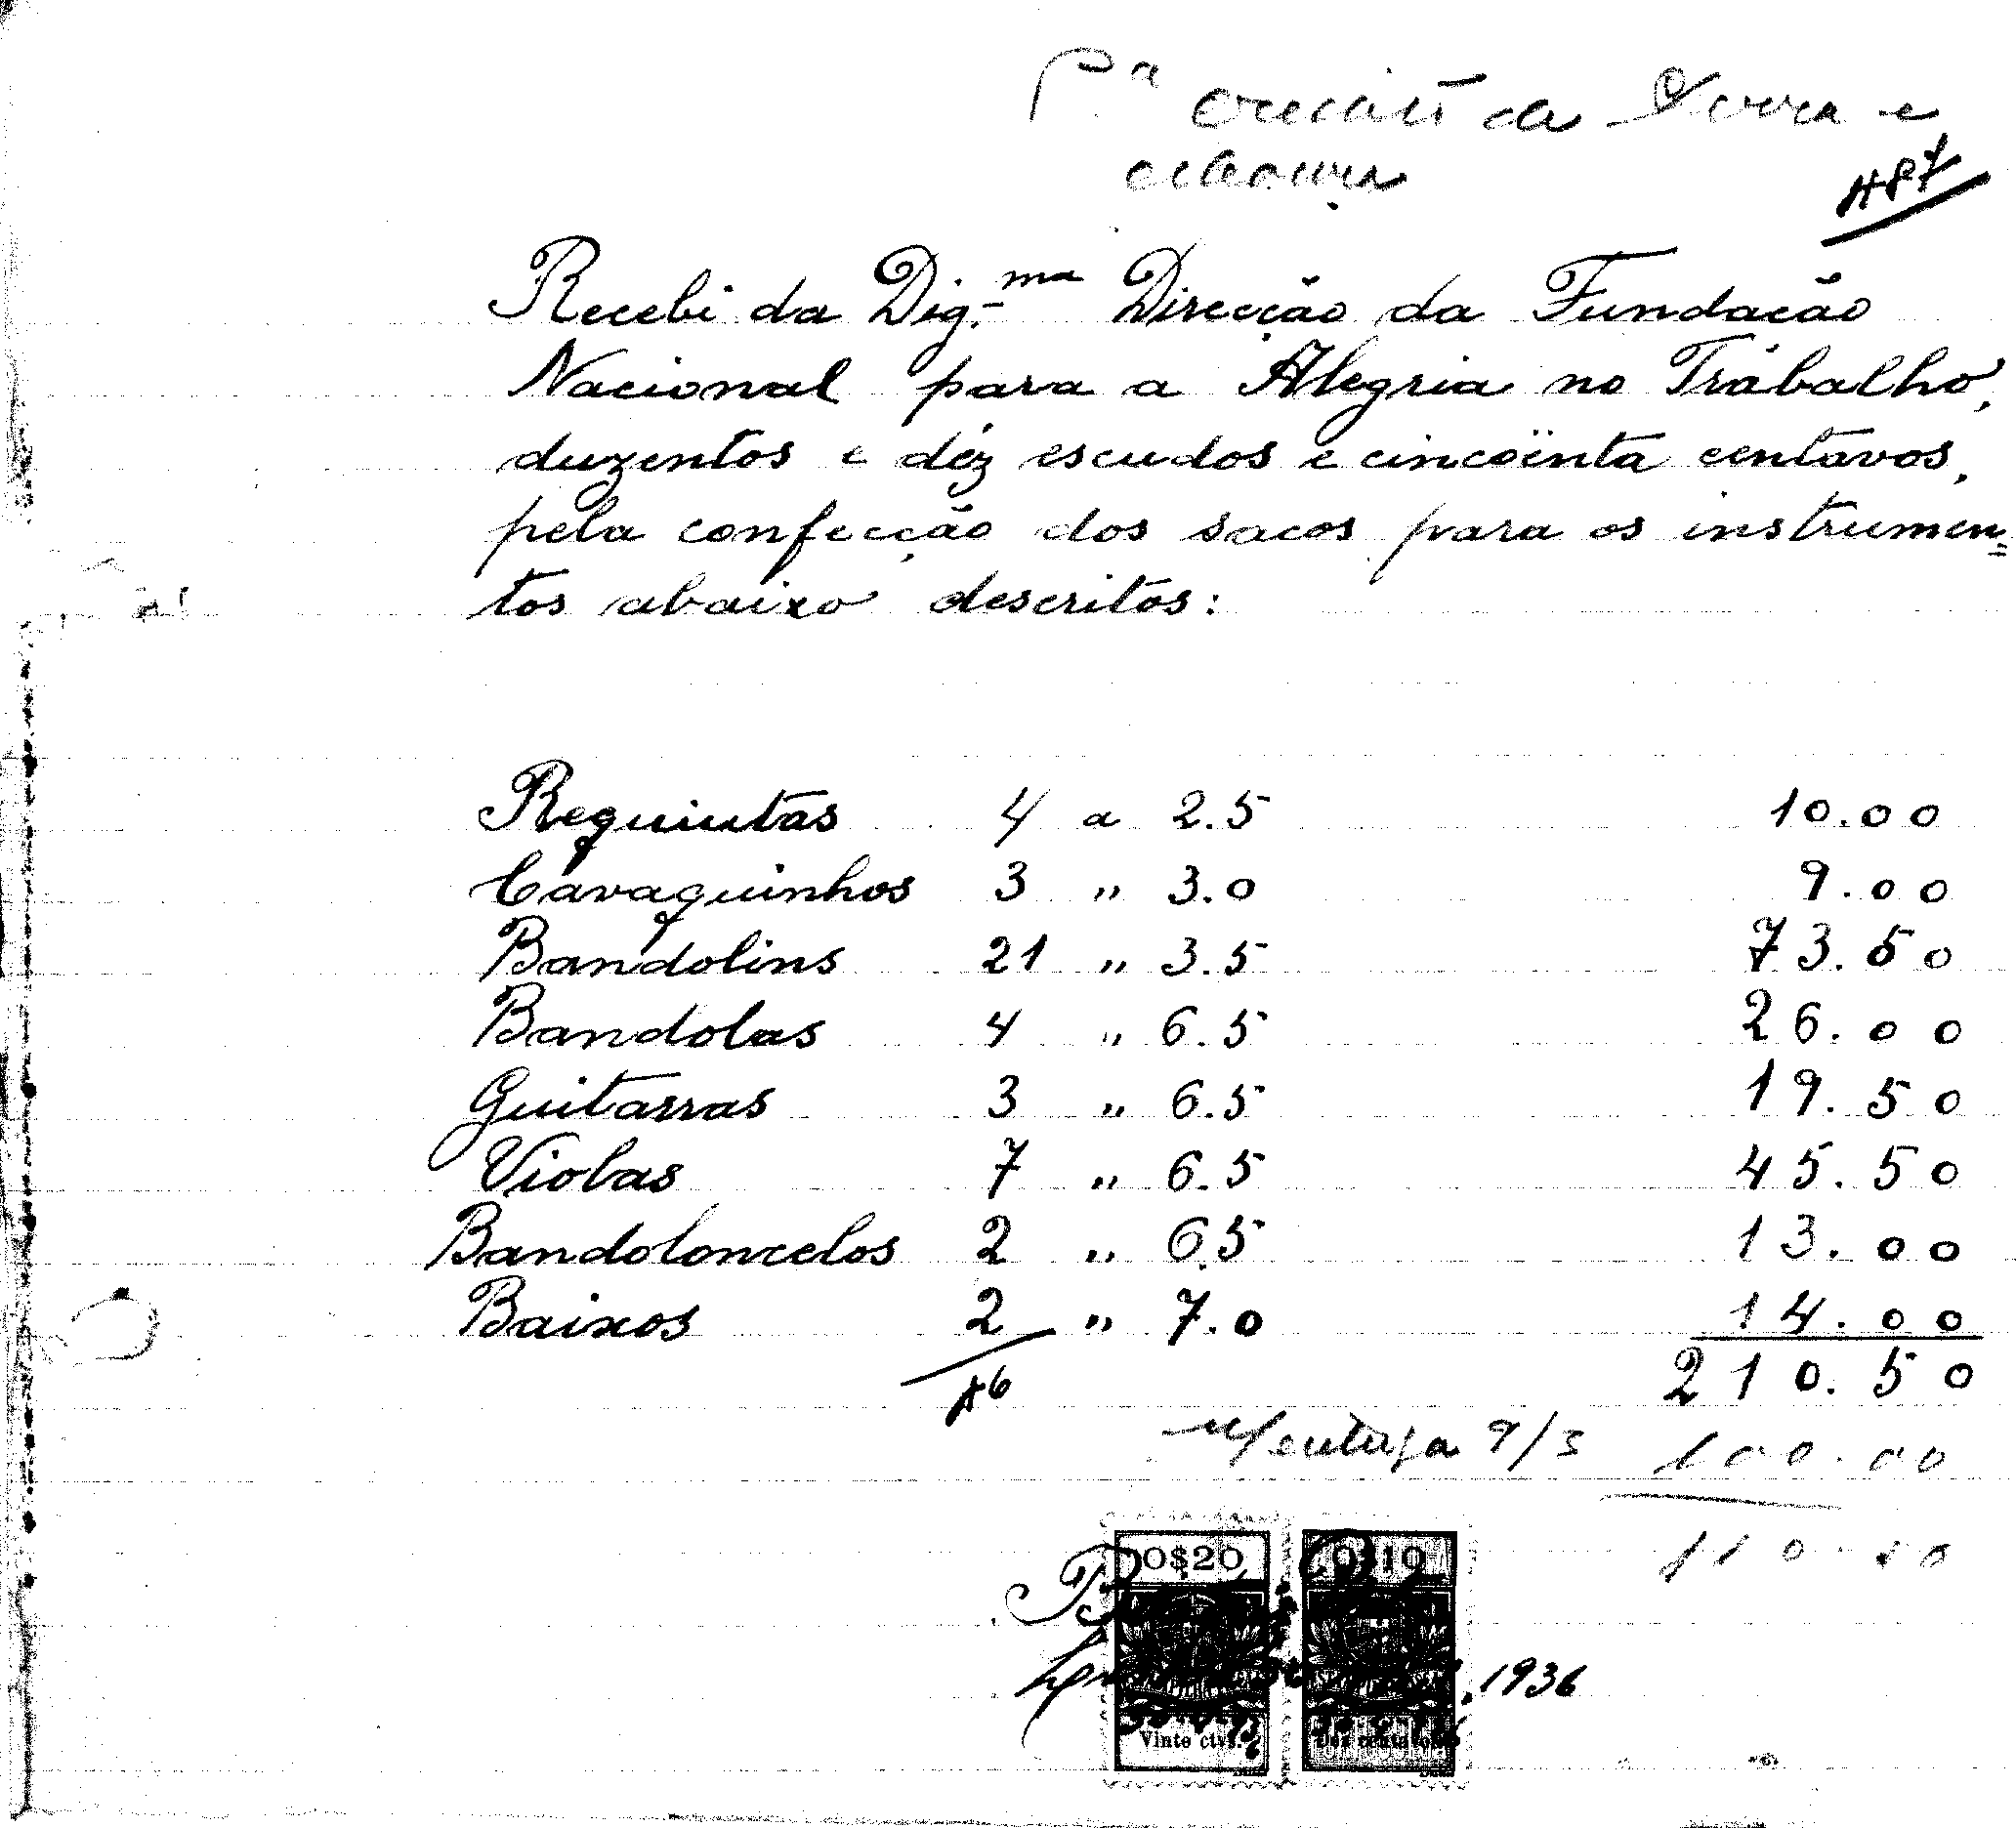 P.ª da Serra e
487
Recebi da Dig.ma Direcção da Fundação
Nacional para a Alegria no Trábalho,
duzentos e déz escudos e cincoënta centavos,
pela confecção dos sacos para os instrumen=
tos abaixo descritos:
Requintas 4 a 2.5 10.00
Cavaquinhos 3 " 3.0 9.00
Bandolins 21 " 3.5 73.50
Bandolas 4 " 6.5 26.00
Guitarras 3 " 6.5 19.50
Violas 7 " 6.5 45.50
Bandoloncelos 2 " 6.5 13.00
Baixos 2 " 7.0 14.00
46 210.50
9/3 100.00
110.50
0$20 0$10
, 1936
Vinte ctvs. Dez centavos